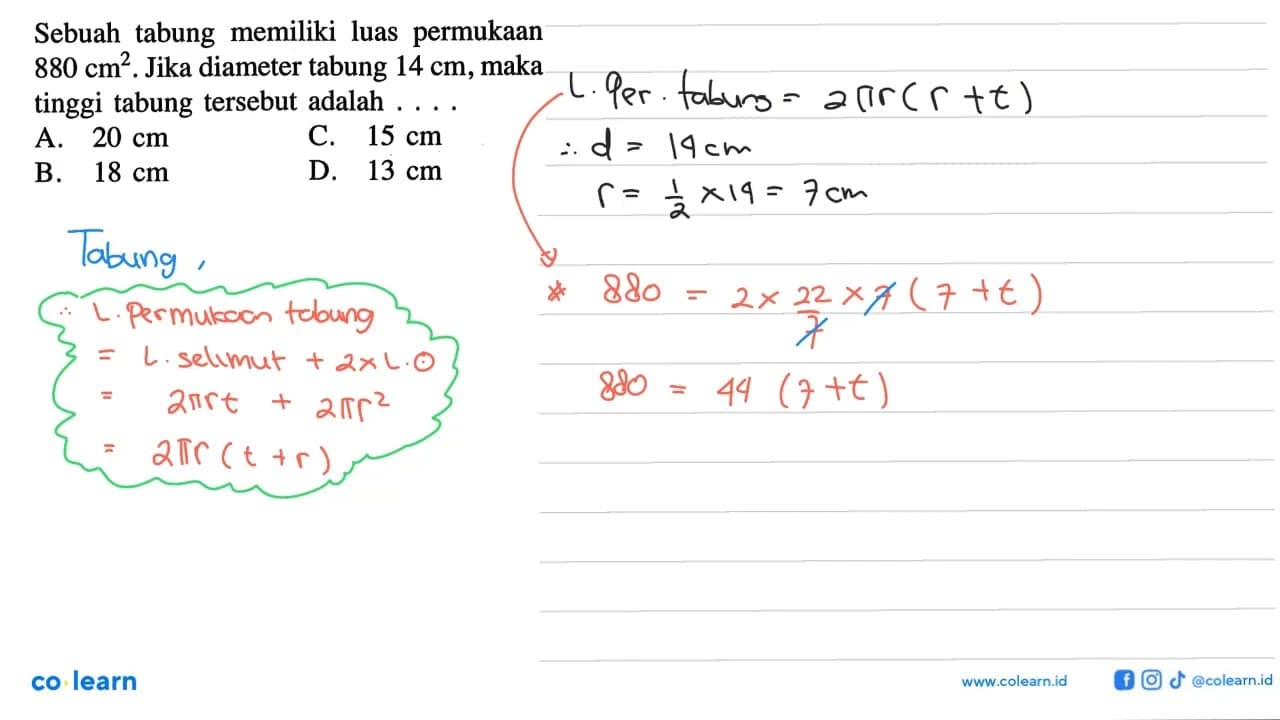 Sebuah tabung memiliki luas permukaan
880 cm². Jika diameter tabung 14 cm, maka
tinggi tabung tersebut adalah . . . .
A. 20 cm C. 15 cm
B. 18 cm D. 13 cm
Tabung,
∴ L. Permukaan tabung
= L. selimut + 2 x L. ⊙
= 2πrt + 2πr²
= 2πr (t + r)
L. Per. tabung = 2πr (r + t)
∴ d = 14 cm
r = 1/2 x 14 = 7 cm
* 880 = 2 x 22/7 x 7 (7 + t)
880 = 44 (7 + t)
co learn
www.colearn.id
@colearn.id